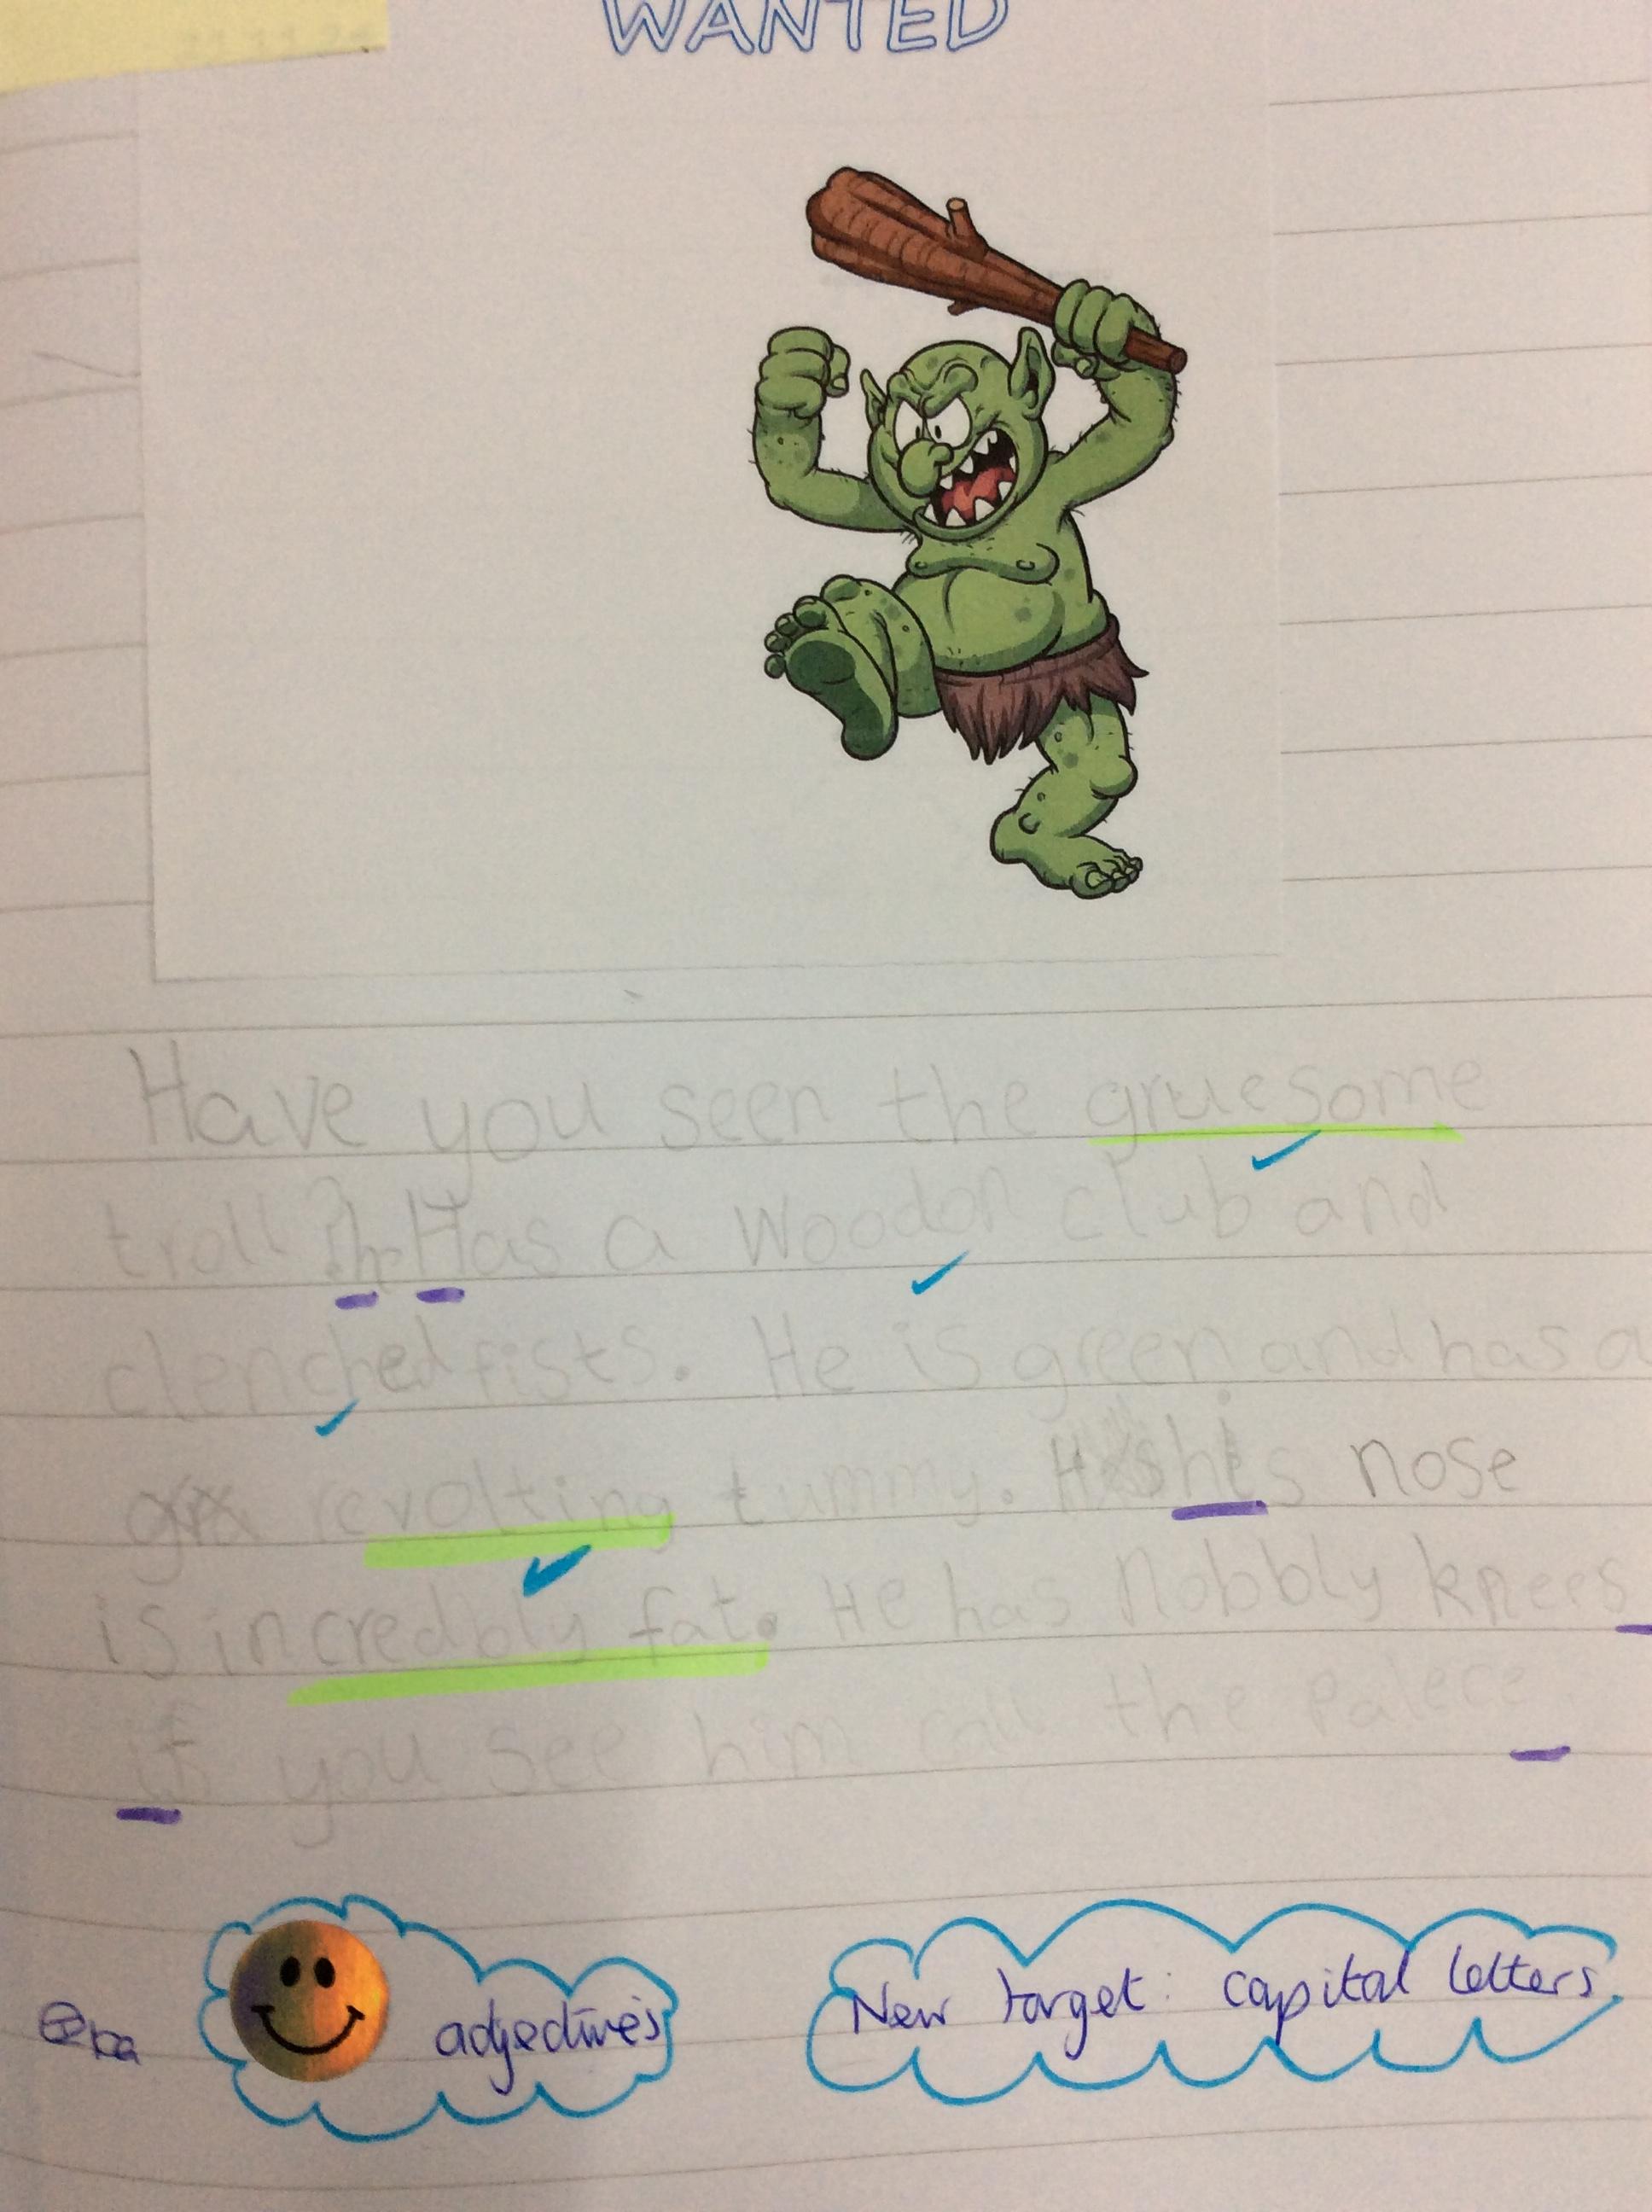 WANTED
Have you seen the gruesome
troll? he Has a woodon club and
clenched fists. He is green and has a
revolting tummy. his nose
is incredbly fat. He has nobbly knees
if you see him call the palece
adjectives
New target: capital letters.